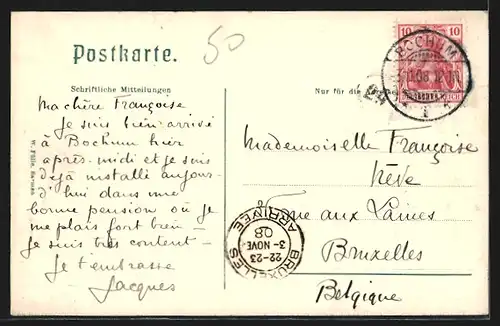 Postkarte.
50
Schriftliche Mitteilungen
Nur für die
Ma chère Françoise
Je suis bien arrivé
à Bochum hier
après-midi et je suis
déjà installé aujour-
d'hui dans une
bonne pension où je
me plais fort bien –
je suis très content –
Je t'embrasse –
Jacques
10 10
BOCHUM
Mademoiselle Françoise
Hève
aux Laines
Bruxelles
Belgique
BRUXELLES
ARRIVÉE
22-23
3-NOVE
08